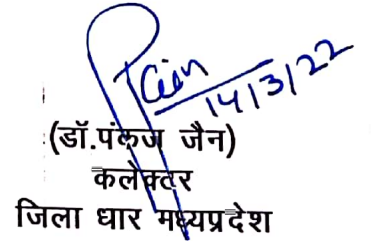 14/3/22
(डॉ.पंकज जैन)
कलेक्टर
जिला धार मध्यप्रदेश